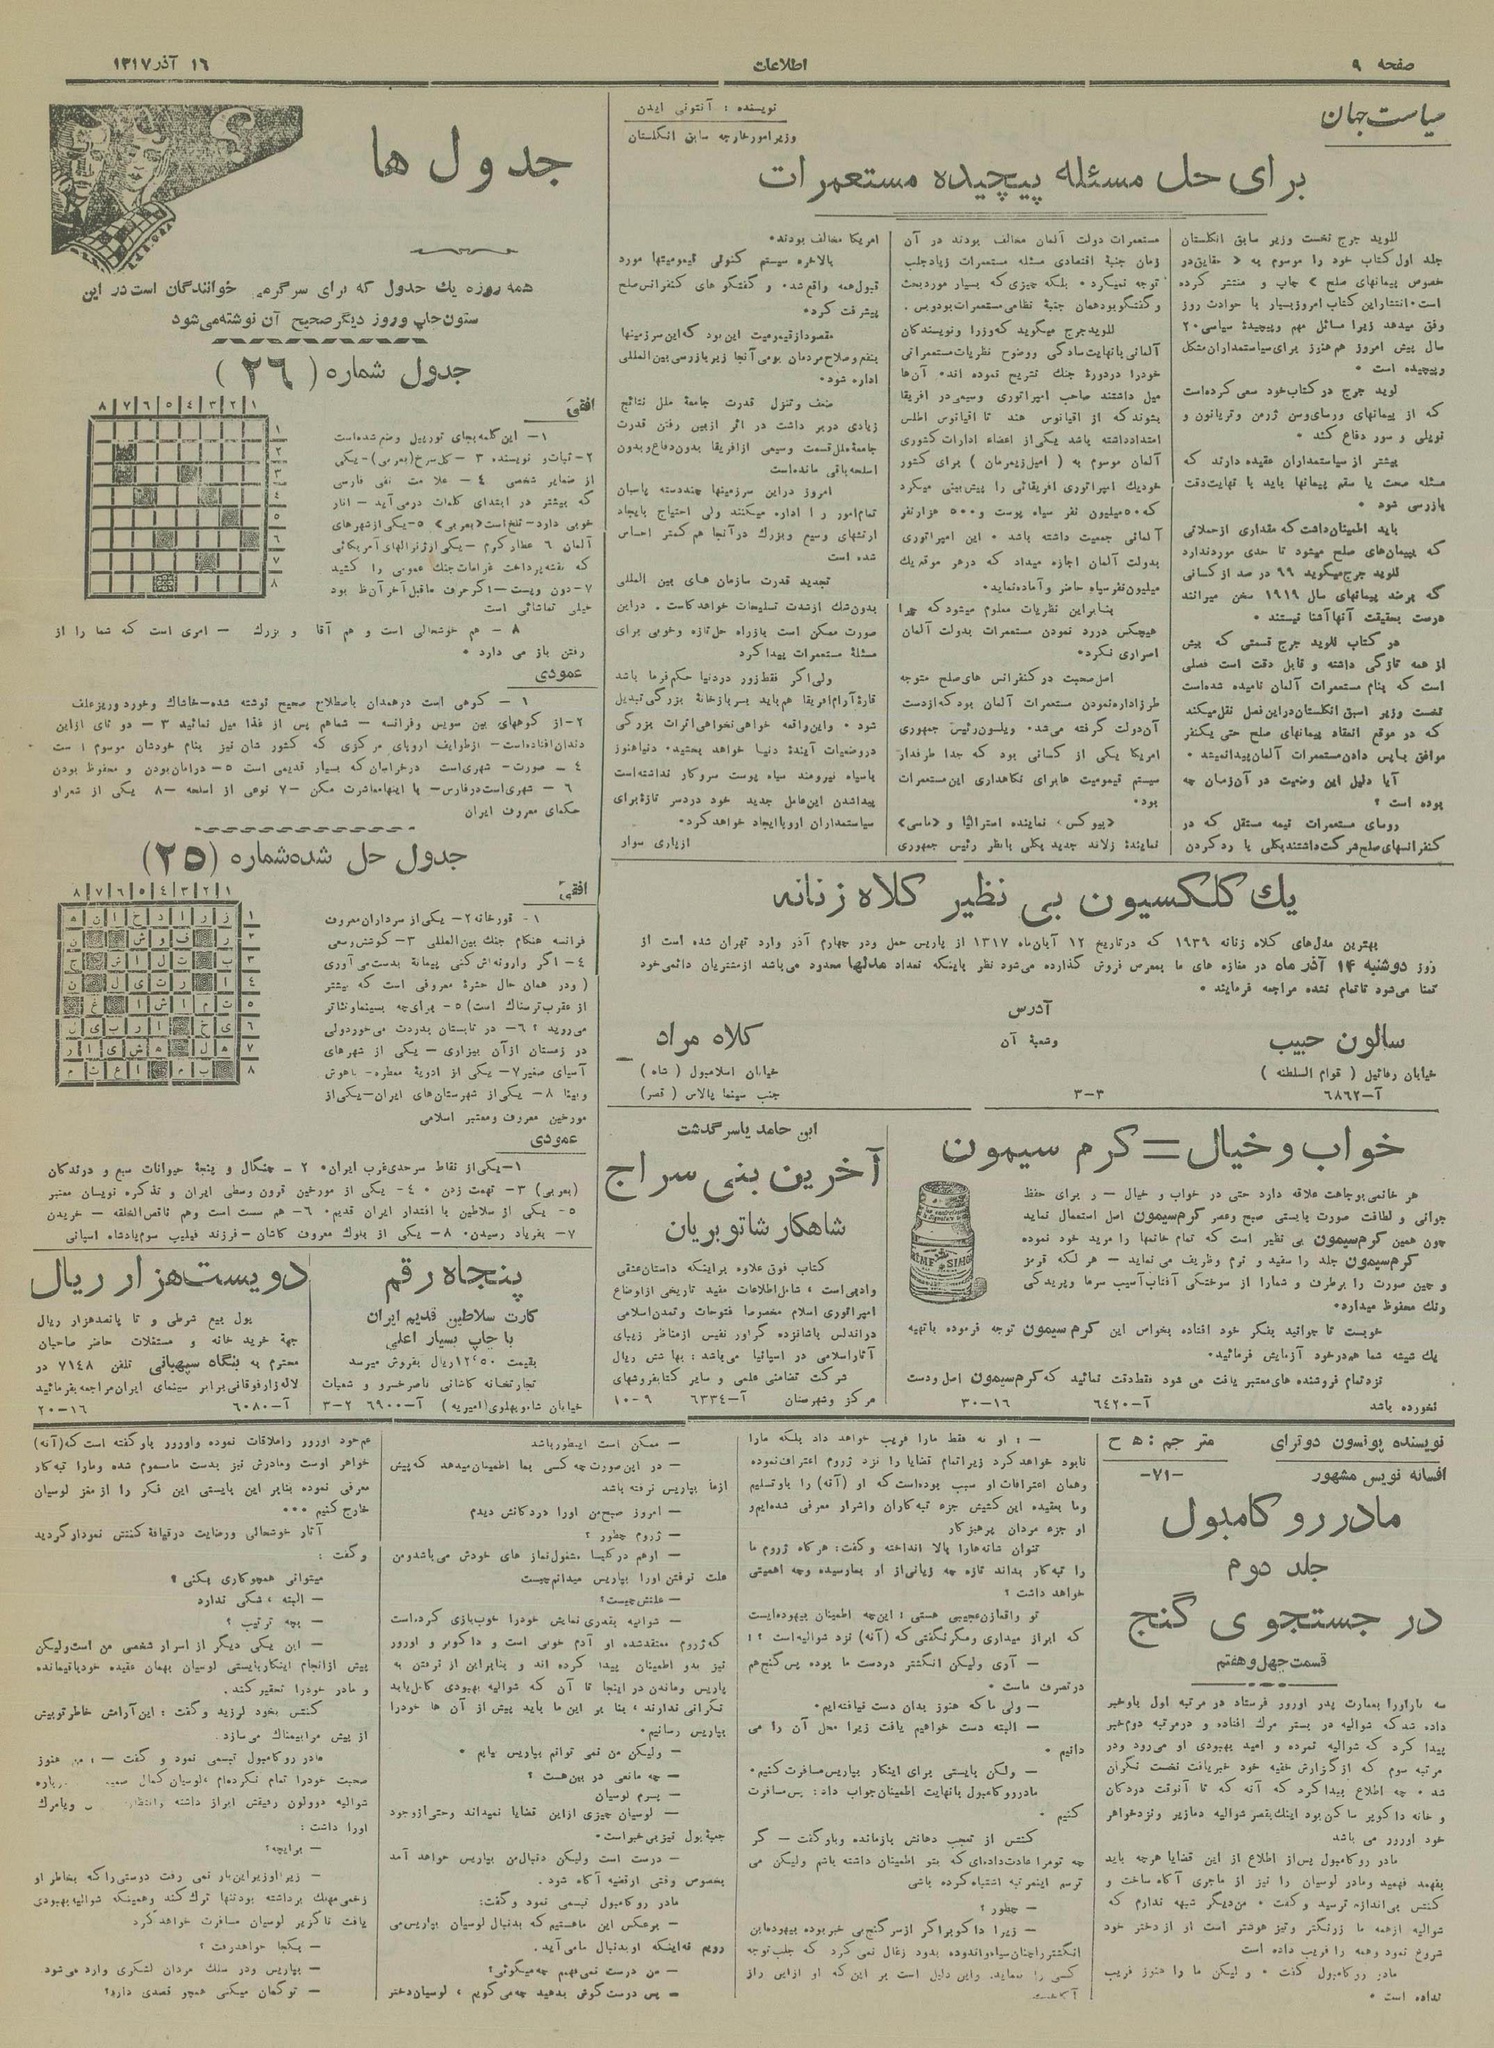 صفحه ۹
اطلاعات
۱٦ آذر ۱۳۱۷
سیاست جهان
نویسنده : آنتونی ایدن
وزیر امور خارجه سابق انگلستان
برای حل مسئله پیچیده مستعمرات
للوید جرج نخست وزیر سابق انگلستان
جلد اول کتاب خود را موسوم به « حقایق در
خصوص پیمانهای صلح » چاپ و منتشر کرده
است. انتشار این کتاب امروز بسیار با حوادث روز
وفق میدهد زیرا مسائل مهم و پیچیدهٔ سیاسی ۲۰
سال پیش امروز هم هنوز برای سیاستمداران مشکل
و پیچیده است .
لوید جرج در کتاب خود سعی کرده است
که از پیمانهای ورسای و سن ژرمن و تریانون و
نویلی و سور دفاع کند .
بیشتر از سیاستمداران عقیده دارند که
مسئله صحت یا سقم پیمانها باید با نهایت دقت
بازرسی شود .
باید اطمینان داشت که مقداری از حملاتی
که به پیمان‌های صلح میشود تا حدی مورد ندارد
للوید جرج میگوید ۹۹ در صد از کسانی
که برضد پیمانهای سال ۱۹۱۹ سخن میرانند
درست بحقیقت آنها آشنا نیستند .
در کتاب للوید جرج قسمتی که بیش
از همه تازگی داشته و قابل دقت است فصلی
است که بنام مستعمرات آلمان نامیده شده است
نخست وزیر اسبق انگلستان در این فصل نقل میکند
که در موقع انعقاد پیمانهای صلح حتی یکنفر
موافق با پس دادن مستعمرات آلمان پیدا نمیشد .
آیا دلیل این وضعیت در آن زمان چه
بوده است ؟
روسای مستعمرات نیمه مستقل که در
کنفرانسهای صلح شرکت داشتند بکلی با رد کردن
مستعمرات دولت آلمان مخالف بودند در آن
زمان جنبهٔ اقتصادی مسئله مستعمرات زیاد جلب
توجه نمیکرد . بلکه چیزی که بسیار مورد بحث
و گفتگو بود همان جنبهٔ نظامی مستعمرات بود و بس .
للوید جرج میگوید که وزرا و نویسندگان
آلمانی با نهایت سادگی و وضوح نظریات مستعمراتی
خود را در دورهٔ جنگ تشریح نموده اند. آن‌ها
میل داشتند صاحب امپراتوری وسیعی در افریقا
بشوند که از اقیانوس هند تا اقیانوس اطلس
امتداد داشته باشد یکی از اعضاء ادارات کشوری
آلمان موسوم به ( امیل زیمرمان ) برای کشور
خود یک امپراتوری افریقائی را پیش بینی میکرد
که ۵۰ میلیون نفر سیاه پوست و ۵۰۰ هزار نفر
آلمانی جمعیت داشته باشد . این امپراتوری
بدولت آلمان اجازه میداد که در هر موقع یک
میلیون نفر سیاه حاضر و آماده نماید.
بنابراین نظریات معلوم میشود که چرا
هیچکس در رد نمودن مستعمرات بدولت آلمان
اصراری نکرد.
اصل صحبت در کنفرانس های صلح متوجه
طرز اداره نمودن مستعمرات آلمان بود که از دست
آن دولت گرفته می‌شد. ویلسون رئیس جمهوری
امریکا یکی از کسانی بود که جدا طرفدار
سیستم قیمومیت ها برای نگاهداری این مستعمرات
بود.
«هیوکس» نماینده استرالیا و «ماسی»
نمایندهٔ زلاند جدید بکلی با نظر رئیس جمهوری
امریکا مخالف بودند.
بالاخره سیستم کنونی قیمومیتها مورد
قبول همه واقع شد. و گفتگو های کنفرانس صلح
پیشرفت کرد.
مقصود از قیمومیت این بود که این سرزمینها
بنفع و صلاح مردمان بومی آنجا زیر بازرسی بین المللی
اداره شود.
ضعف و تنزل قدرت جامعهٔ ملل نتائج
زیادی در بر داشت در اثر از بین رفتن قدرت
جامعهٔ ملل قسمت وسیعی از افریقا بدون دفاع و بدون
اسلحه باقی مانده است
امروز در این سرزمینها چند دسته پاسبان
تمام امور را اداره میکنند ولی احتیاج بایجاد
ارتشهای وسیع و بزرگ در آنجا هم کمتر احساس
شده است
تجدید قدرت سازمان های بین المللی
بدون شک از شدت تسلیحات خواهد کاست . در این
صورت ممکن است باز راه حل تازه و خوبی برای
مسئلهٔ مستعمرات پیدا کرد
ولی اگر فقط زور در دنیا حکم فرما باشد
قارهٔ آرام افریقا هم باید بسرباز خانهٔ بزرگی تبدیل
شود . و این واقعه خواهی نخواهی اثرات بزرگی
در وضعیات آیندهٔ دنیا خواهد بخشید. دنیا هنوز
با سپاه نیرومند سیاه پوست سر و کار نداشته است
پیدا شدن این عامل جدید خود دردسر تازهٔ برای
سیاستمداران اروپا ایجاد خواهد کرد.
ازیاری سوار
یک کلکسیون بی نظیر کلاه زنانه
بهترین مدل‌های کلاه زنانه ۱۹۳۹ که در تاریخ ۱۲ آبان ماه ۱۳۱۷ از پاریس حمل و در چهارم آذر وارد تهران شده است از
روز دوشنبه ۱۴ آذر ماه در مغازه های ما بمعرض فروش گذارده می‌شود نظر باینکه تعداد مدلها محدود می‌باشد از مشتریان دائمی خود
تمنا می‌شود تا تمام نشده مراجعه فرمایند .
آدرس
سالون حبیب
و شعبهٔ آن
کلاه مراد
خیابان رفائیل ( قوام السلطنه )
خیابان اسلامبول ( شاه )
آ—٦۸٦۲
۳—۳
جنب سینما پالاس ( قصر )
خواب و خیال = کرم سیمون
هر خانمی بوجاهت علاقه دارد حتی در خواب و خیال — و برای حفظ
جوانی و لطافت صورت بایستی صبح و عصر کرم سیمون اصل استعمال نماید
چون همین کرم سیمون بی نظیر است که تمام خانمها را مرید خود نموده
کرم سیمون جلد را سفید و نرم و ظریف می نماید — هر لکه قرمز
و چین صورت را برطرف و شما را از سوختگی آفتاب آسیب سرما و پریدگی
رنگ محفوظ میدارد.
خوبست تا جوانید بفکر خود افتاده بخواص این کرم سیمون توجه فرموده با تهیه
یک شیشه شما هم در خود آزمایش فرمائید.
نزد تمام فروشنده های معتبر یافت می شود فقط دقت نمائید که کرم سیمون اصل و دست
نخورده باشد
آ—٦۴۲۰
۳۰—۱٦
CREME SIMON
ابن حامد یا سرگذشت
آخرین بنی سراج
شاهکار شاتوبریان
کتاب فوق علاوه بر اینکه داستان عشقی
و ادبی است ، شامل اطلاعات مفید تاریخی از اوضاع
امپراتوری اسلام مخصوصا فتوحات و تمدن اسلامی
در اندلس با شانزده گراور نفیس از مناظر زیبای
آثار اسلامی در اسپانیا می‌باشد : بها شش ریال
شرکت تضامنی علمی و سایر کتابفروشهای
مرکز و شهرستان آ—٦۳۳۴ ۹—۱۰
جدول ها
همه روزه یک جدول که برای سرگرمی خوانندگان است در این
ستون چاپ و روز دیگر صحیح آن نوشته می‌شود
جدول شماره ( ۲٦ )
۸ ۷ ٦ ۵ ۴ ۳ ۲ ۱
۱
۲
۳
۴
۵
٦
۷
۸
افقی
۱— این کلمه بجای تورپیل وضع شده است
۲—ثبات و نویسنده ۳—گل سرخ (بعربی)—یکی
از ضمایر شخصی ۴— علامت نفی فارسی
که بیشتر در ابتدای کلمات در می‌آید — انار
خوبی دارد—تلخ است «بعربی» ۵—یکی از شهرهای
آلمان ٦ عطار کرم —یکی از ژنرالهای آمریکائی
که نقشه پرداخت غرامات جنگ عمومی را کشید
۷—دون و پست—اگر حرف ماقبل آخر آن ظ بود
خیلی تماشائی است
۸ — هم خوشحالی است و هم آقا و بزرگ — امری است که شما را از
رفتن باز می دارد .
عمودی
۱ — کوهی است در همدان باصطلاح صحیح نوشته شده—خاشاک و خورد و ریز علف
۲—از کوههای بین سویس و فرانسه — شما هم پس از غذا میل نمائید ۳ — دو تای از این
دندان افتاده است— از طوایف اروپای مرکزی که کشور شان نیز بنام خودشان موسوم است
۴ — صورت— شهری است در خراسان که بسیار قدیمی است ۵— در امان بودن و محفوظ بودن
٦ — شهری است در فارس— با اینها معاشرت مکن —۷ نوعی از اسلحه —۸ یکی از شعرا و
حکمای معروف ایران
جدول حل شده شماره (۲۵)
۸ ۷ ٦ ۵ ۴ ۳ ۲ ۱
۱ ز ر ا د خ ا ن ه
۲
۳
۴
۵
٦
۷
۸
افقی
۱— قورخانه ۲— یکی از سرداران معروف
فرانسه هنگام جنگ بین المللی ۳— کوشش رسمی
۴—اگر وارونه اش کنی پیمانهٔ بدست می آوری
( و در همان حال حشرهٔ معروفی است که بیشتر
از عقرب ترسناک است) ۵— برای چه بسینما و تئاتر
می‌روید ؟ ٦— در تابستان بندرت می‌خورد ولی
در زمستان از آن بیزاری — یکی از شهر های
آسیای صغیر ۷— یکی از ادویهٔ معطره— باهوش
و بینا ۸— یکی از شهرستان‌های ایران—یکی از
مورخین معروف و معتبر اسلامی
عمودی
۱—یکی از نقاط سرحدی غرب ایران. ۲ — چنگال و پنجهٔ حیوانات سبع و درندگان
(بعربی) ۳— تهمت زدن . ۴— یکی از مورخین قرون وسطی ایران و تذکره نویسان معتبر
۵— یکی از سلاطین با اقتدار ایران قدیم. ٦— هم سست است و هم ناقص الخلقه — خریدن
۷— بفریاد رسیدن. ۸— یکی از بلوک معروف کاشان—فرزند فیلیپ سوم پادشاه اسپانی
پنجاه رقم
کارت سلاطین قدیم ایران
با چاپ بسیار اعلی
بقیمت ۱۲٬۵۰ ریال بفروش میرسد
تجارتخانه کاشانی ناصر خسرو و شعبات
خیابان شاه و پهلوی (امیریه) آ—٦۹۰۰ ۲—۳
دویست هزار ریال
پول بیع شرطی و تا پانصد هزار ریال
جهة خرید خانه و مستغلات حاضر صاحبان
محترم به بنگاه سپهبانی تلفن ۷۱۴۸ در
لاله زار فوقانی برابر سینمای ایران مراجعه بفرمائید
آ—٦۰۸۰ ۱٦—۲۰
نویسنده پونسون دوترای
مترجم : ه ح
افسانه نویس مشهور
—۷۱—
مادر روکامبول
جلد دوم
در جستجوی گنج
قسمت چهل و هفتم
سه بار اورا بعمارت پدر اورور فرستاد در مرتبه اول باو خبر
داده شد که شوالیه در بستر مرگ افتاده و در مرتبه دوم خبر
پیدا کرد که شوالیه نمرده و امید بهبودی او می‌رود و در
مرتبه سوم که از گزارش خفیه خود خبر یافت نخست نگران
شد . چه اطلاع پیدا کرد که آنه که تا آنوقت در دکان
و خانه داکوبر ساکن بود اینک بقصر شوالیه دمازیر و نزد خواهر
خود اورور می باشد
مادر روکامبول پس از اطلاع از این قضایا هر چه باید
بفهمد فهمید و مادر لوسیان را نیز از ماجری آگاه ساخت و
کنتس بی اندازه ترسید و گفت . من دیگر شبهه ندارم که
شوالیه از همه ما زرنگتر و تیز هوشتر است او از دختر خود
شروع نمود و همه را فریب داده است
مادر روکامبول گفت . و لیکن ما را هنوز فریب
نداده است .
— : او نه فقط مارا فریب خواهد داد بلکه مارا
نابود خواهد کرد زیرا تمام قضایا را نزد ژروم اعتراف نموده
و همان اعترافات او سبب بوده است که او (آنه) را باو تسلیم
و ما بعقیده این کشیش جزء تبه کاران و اشرار معرفی شده ایم و
او جزء مردان پرهیز کار
تتوان شانه هارا بالا انداخته و گفت : هر گاه ژروم ما
را تبه کار بداند تازه چه زیانی از او بما رسیده و چه اهمیتی
خواهد داشت ؟
تو واقعا زن عجیبی هستی : این چه اطمینان بیهوده ایست
که ابراز میداری و مگر نگفتی که (آنه) نزد شوالیه است ؟ !
— آری ولیکن انگشتر در دست ما بوده پس گنج هم
در تصرف ماست .
— ولی ما که هنوز بدان دست نیافته ایم.
— البته دست خواهیم یافت زیرا محل آن را می
دانیم .
— ولکن بایستی برای اینکار بپاریس مسافرت کنیم.
مادر روکامبول با نهایت اطمینان جواب داد : پس مسافرت
کنیم .
کنتس از تعجب دهانش باز مانده و باو گفت — گر
چه تو مرا عادت داده ای که بتو اطمینان داشته باشم ولیکن می
ترسم اینمرتبه اشتباه کرده باشی
— چطور ؟
— زیرا داکوبر اگر از سر گنج بی خبر بوده بیهوده این
انگشتر را چنان سیاه و اندوده بدود زغال نمی کرد که جلب توجه
کسی را ننماید. و این دلیل است بر این که او از این راز
آگاهست.
— ممکن است اینطور باشد
— در این صورت چه کسی بما اطمینان میدهد که پیش
از ما بپاریس نرفته باشد
— امروز صبح من اورا در دکانش دیدم
— ژروم چطور ؟
— او هم در کلیسا مشغول نماز های خودش می باشد و من
علت نرفتن اورا بپاریس میدانم چیست
— علتش چیست ؟
— شوالیه بقدری نمایش خودرا خوب بازی کرده است
که ژروم معتقد شده او آدم خوبی است و داکوبر و اورور
نیز بدو اطمینان پیدا کرده اند و بنابراین از نرفتن به
پاریس و ماندن در اینجا تا آن که شوالیه بهبودی کامل یابد
نگرانی ندارند ، بنا بر این ما باید پیش از آن ها خودرا
بپاریس رسانیم.
— ولیکن من نمی توانم بپاریس بیایم .
— چه مانعی در بین هست ؟
— پسرم لوسیان
— لوسیان چیزی از این قضایا نمیداند و حتی از وجود
جعبهٔ پول نیز بی خبر است.
— درست است ولیکن دنبال من بپاریس خواهد آمد
بخصوص وقتی از قضیه آگاه شود .
مادر روکامبول تبسمی نمود و گفت:
— برعکس این ما هستیم که بدنبال لوسیان بپاریس می
رویم نه اینکه او بدنبال ما می آید .
— من درست نمی فهمم چه میگوئی؟
— پس درست گوش بدهید چه می گویم ، لوسیان دختر
عم خود اورور را ملاقات نموده و اورور باو گفته است که (آنه)
خواهر اوست و مادرش نیز بدست ما مسموم شده و مارا تبه کار
معرفی نموده بنابر این بایستی این فکر را از مغز لوسیان
خارج کنیم ...
آثار خوشحالی و رضایت در قیافهٔ کنتس نمودار گردید
و گفت :
میتوانی همچو کاری بکنی ؟
— البته ، شکی ندارد
— بچه ترتیب ؟
— این یکی دیگر از اسرار شخصی من است ولیکن
پیش از انجام اینکار بایستی لوسیان بهمان عقیده خود باقیمانده
و مادر خودرا تحقیر کند .
کنتس بخود لرزید و گفت : این آرامش خاطر تو بیش
از پیش مرا بیمناک می سازد.
مادر روکامبول تبسمی نمود و گفت — : من هنوز
صحبت خودرا تمام نکرده ام ، لوسیان کمال صمیمیت را درباره
شوالیه دوولون رفیقش ابراز داشته و انتظار و یا مرگ
اورا داشت :
— برای چه ؟
— زیرا او زیر این بار نمی رفت دوستی را که بخاطر او
زخمی مهلک برداشته بود تنها ترک کند و همینکه شوالیه بهبودی
یافت ناگزیر لوسیان مسافرت خواهد کرد
— بکجا خواهد رفت ؟
— بپاریس و در سلک مردان لشکری وارد می‌شود
— تو گمان میکنی همچو قصدی دارد؟